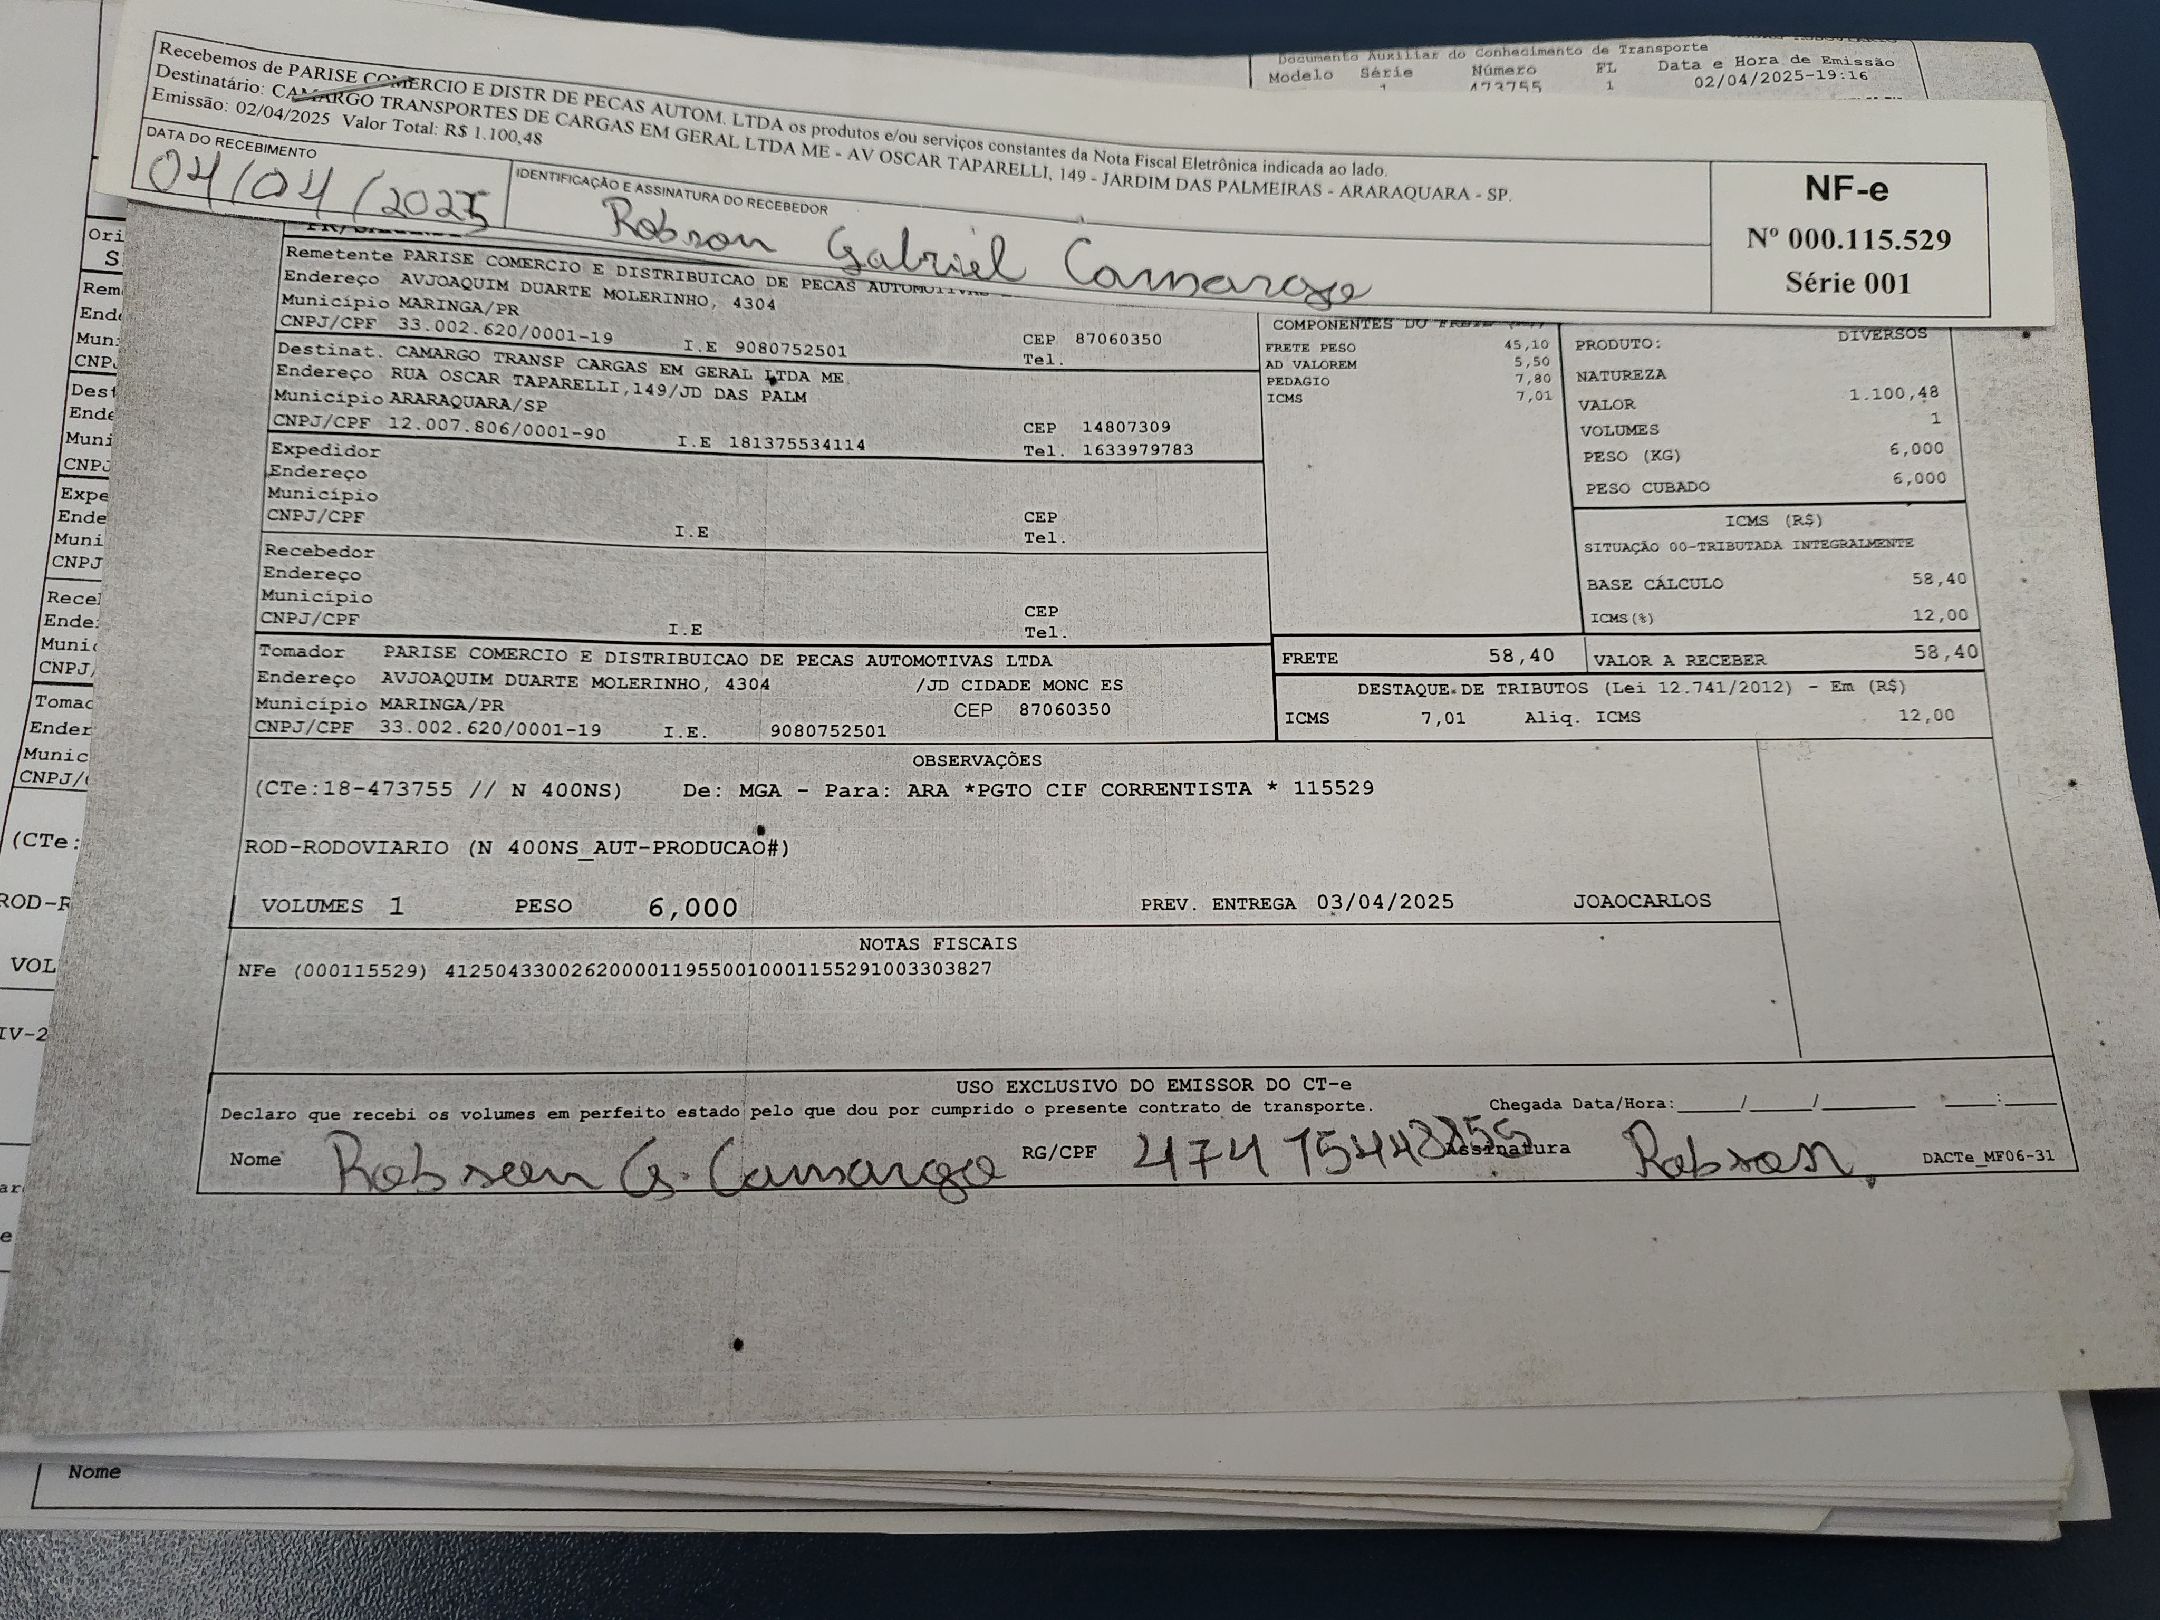 Documento Auxiliar do Conhecimento de Transporte
Modelo Série Número FL Data e Hora de Emissão
473755 1 02/04/2025-19:16
Recebemos de PARISE COMERCIO E DISTR DE PECAS AUTOM. LTDA os produtos e/ou serviços constantes da Nota Fiscal Eletrônica indicada ao lado.
Destinatário: CAMARGO TRANSPORTES DE CARGAS EM GERAL LTDA ME - AV OSCAR TAPARELLI, 149 - JARDIM DAS PALMEIRAS - ARARAQUARA - SP.
Emissão: 02/04/2025 Valor Total: R$ 1.100,48
DATA DO RECEBIMENTO
04/04/2025
IDENTIFICAÇÃO E ASSINATURA DO RECEBEDOR
Robson Gabriel Camargo
NF-e
Nº 000.115.529
Série 001
Remetente PARISE COMERCIO E DISTRIBUICAO DE PECAS AUTOMOTIVAS
Endereço AVJOAQUIM DUARTE MOLERINHO, 4304
Município MARINGA/PR
CEP 87060350
CNPJ/CPF 33.002.620/0001-19 I.E 9080752501 Tel.
Destinat. CAMARGO TRANSP CARGAS EM GERAL LTDA ME
Endereço RUA OSCAR TAPARELLI,149/JD DAS PALM
Município ARARAQUARA/SP CEP 14807309
CNPJ/CPF 12.007.806/0001-90 I.E 181375534114 Tel. 1633979783
Expedidor
Endereço
Município CEP
CNPJ/CPF I.E Tel.
Recebedor
Endereço
Município CEP
CNPJ/CPF I.E Tel.
Tomador PARISE COMERCIO E DISTRIBUICAO DE PECAS AUTOMOTIVAS LTDA
Endereço AVJOAQUIM DUARTE MOLERINHO, 4304 /JD CIDADE MONC ES
Município MARINGA/PR CEP 87060350
CNPJ/CPF 33.002.620/0001-19 I.E. 9080752501
COMPONENTES DO FRETE
FRETE PESO 45,10
AD VALOREM 5,50
PEDAGIO 7,80
ICMS 7,01
PRODUTO: DIVERSOS
NATUREZA
VALOR 1.100,48
VOLUMES 1
PESO (KG) 6,000
PESO CUBADO 6,000
ICMS (R$)
SITUAÇÃO 00-TRIBUTADA INTEGRALMENTE
BASE CÁLCULO 58,40
ICMS(%) 12,00
FRETE 58,40 VALOR A RECEBER 58,40
DESTAQUE DE TRIBUTOS (Lei 12.741/2012) - Em (R$)
ICMS 7,01 Aliq. ICMS 12,00
OBSERVAÇÕES
(CTe:18-473755 // N 400NS) De: MGA - Para: ARA *PGTO CIF CORRENTISTA * 115529
ROD-RODOVIARIO (N 400NS_AUT-PRODUCAO#)
VOLUMES 1 PESO 6,000 PREV. ENTREGA 03/04/2025 JOAOCARLOS
NOTAS FISCAIS
NFe (000115529) 41250433002620000119550010001155291003303827
USO EXCLUSIVO DO EMISSOR DO CT-e
Declaro que recebi os volumes em perfeito estado pelo que dou por cumprido o presente contrato de transporte. Chegada Data/Hora:____/____/______ ____:____
Nome Robson G. Camargo RG/CPF Assinatura Robson DACTe_MF06-31
Nome